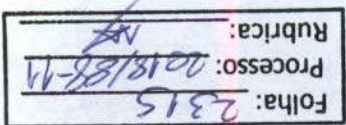 Folha: 2315
Processo: 2018/88-11
Rubrica: